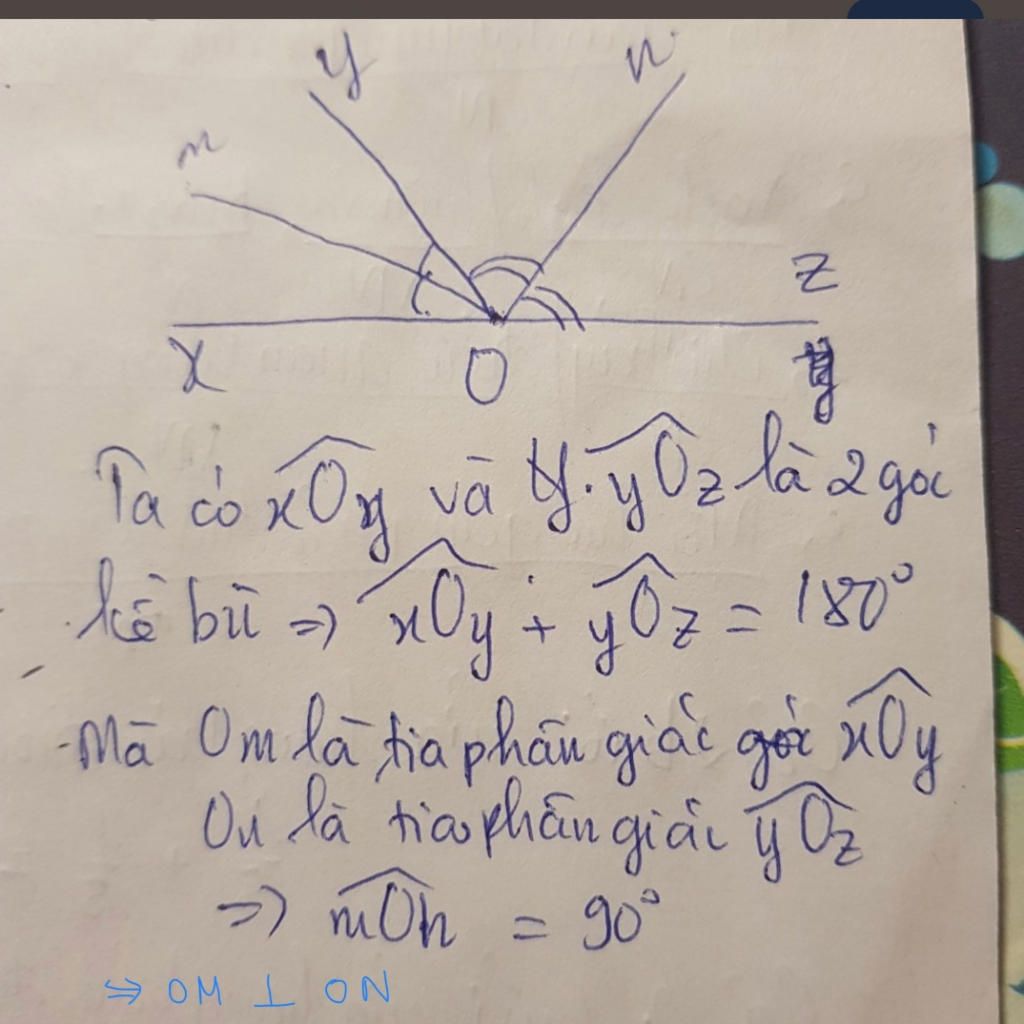 y n
m
z
x O
Ta có xOy và y. yOz là 2 góc
kề bù => xOy + yOz = 180°
- Mà Om là tia phân giác góc xOy
On là tia phân giác yOz
=> mOn = 90°
=> OM ⊥ ON